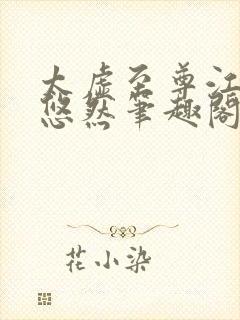 太虚至尊江
悠然笔趣阁
花小染